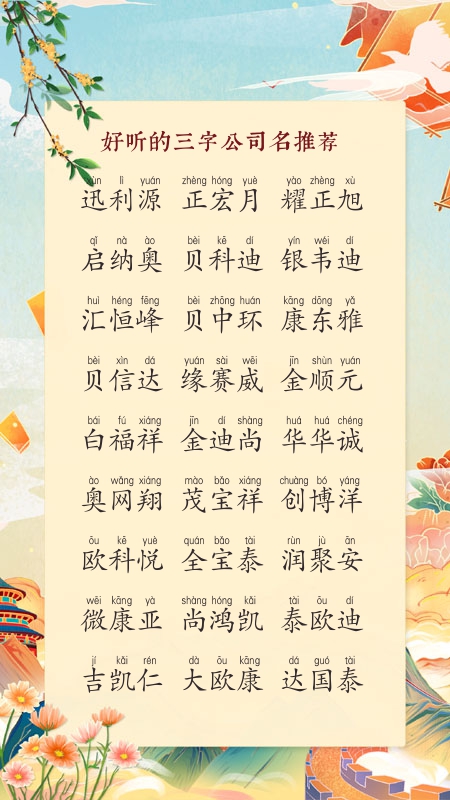 好听的三字公司名推荐
xùn lì yuán zhèng hóng yuè yào zhèng xù
迅利源 正宏月 耀正旭
qǐ nà ào bèi kē dí yín wéi dí
启纳奥 贝科迪 银韦迪
huì héng fēng bèi zhōng huán kāng dōng yǎ
汇恒峰 贝中环 康东雅
bèi xìn dá yuán sài wēi jīn shùn yuán
贝信达 缘赛威 金顺元
bái fú xiáng jīn dí shàng huá huá chéng
白福祥 金迪尚 华华诚
ào wǎng xiáng mào bǎo xiáng chuàng bó yáng
奥网翔 茂宝祥 创博洋
ōu kē yuè quán bǎo tài rùn jù ān
欧科悦 全宝泰 润聚安
wēi kāng yà shàng hóng kǎi tài ōu dí
微康亚 尚鸿凯 泰欧迪
jí kǎi rén dà ōu kāng dá guó tài
吉凯仁 大欧康 达国泰